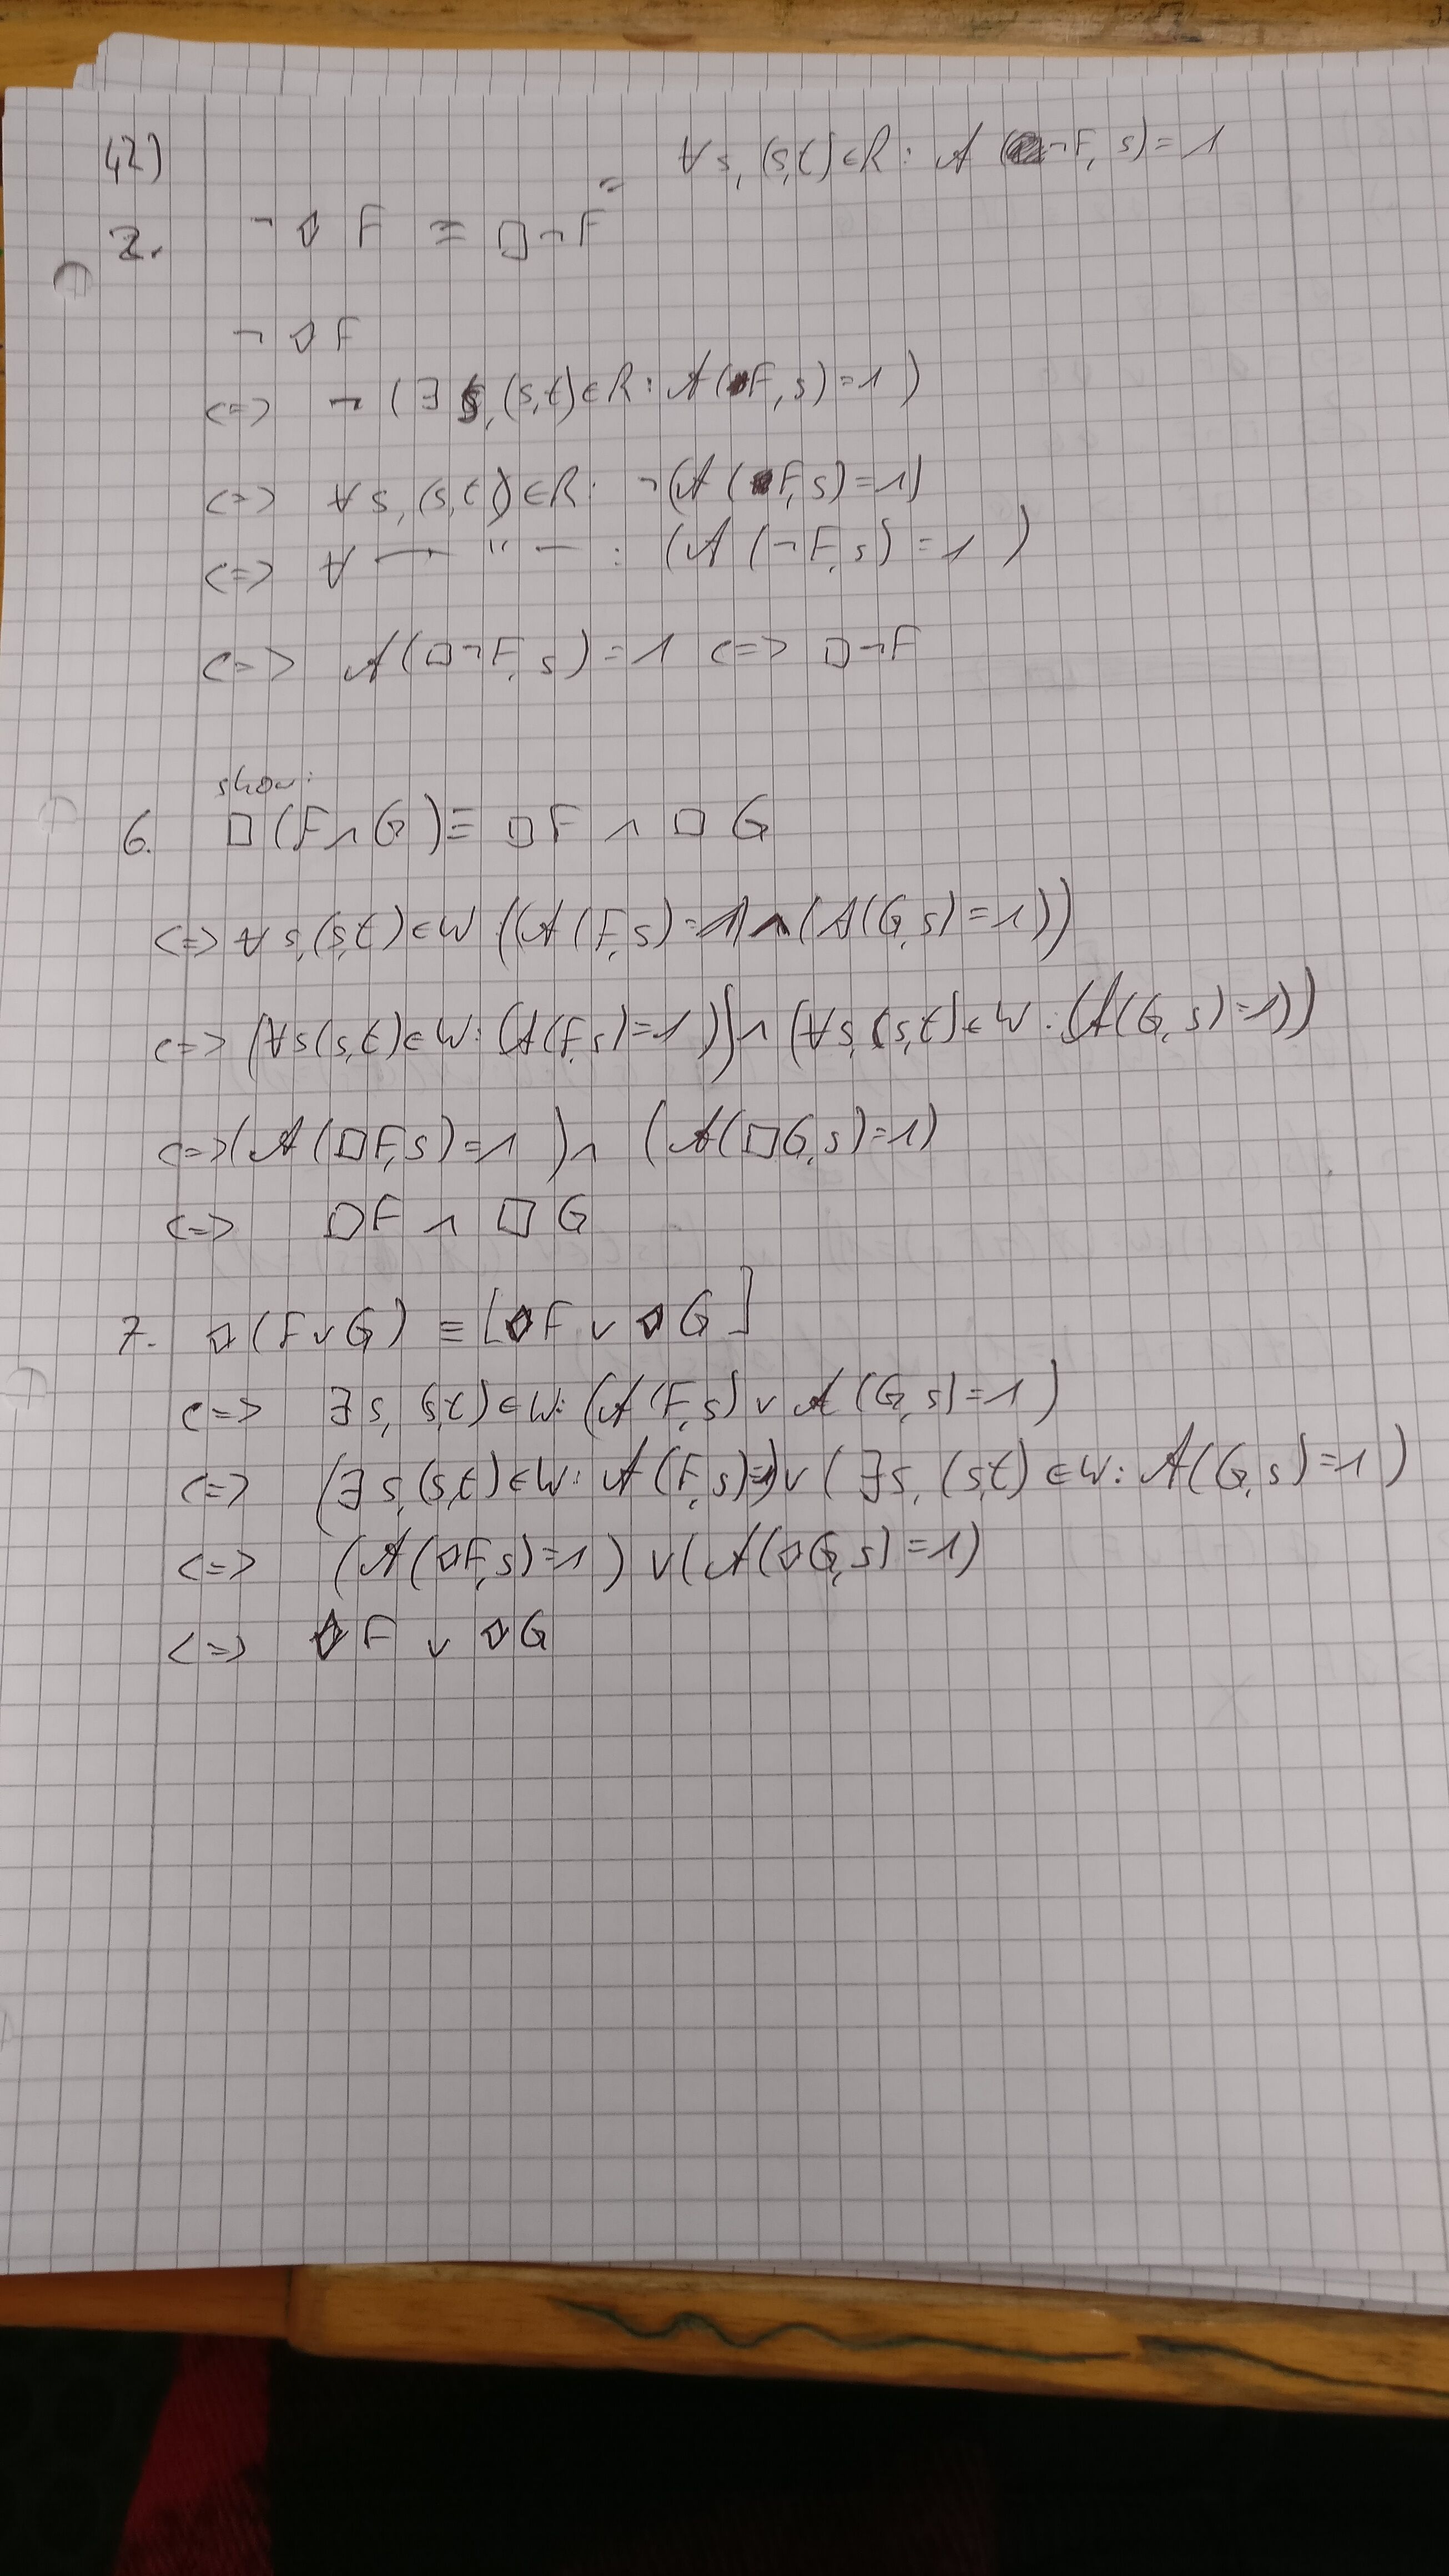 42)
∀ s, (s,t) ∈ R : A (¬F, s) = 1
2. ¬ ◇ F ≡ □ ¬ F
¬ ◇ F
<=> ¬ ( ∃ s, (s,t) ∈ R : A(F, s) = 1 )
<=> ∀ s, (s,t) ∈ R : ¬(A (F, s) = 1)
<=> ∀ — " — : (A (¬F, s) = 1 )
<=> A(□¬F, s) = 1 <=> □¬F
show:
6. □(F∧G) ≡ □F ∧ □G
<=> ∀ s, (s,t) ∈ W ((A(F,s)=1) ∧ (A(G,s)=1))
<=> (∀ s (s,t) ∈ W : (A(F,s)=1 )) ∧ (∀ s, (s,t) ∈ W : (A(G,s)=1))
<=> (A(□F,s)=1 ) ∧ (A(□G,s)=1)
<=> □F ∧ □G
7. ◇(F∨G) ≡ [◇F ∨ ◇G]
<=> ∃ s, (s,t) ∈ W: (A(F,s) ∨ A(G,s)=1 )
<=> (∃ s, (s,t) ∈ W: A(F,s)=1) ∨ ( ∃ s, (s,t) ∈ W: A(G,s)=1 )
<=> (A(◇F,s)=1 ) ∨ (A(◇G,s)=1)
<=> ◇F ∨ ◇G